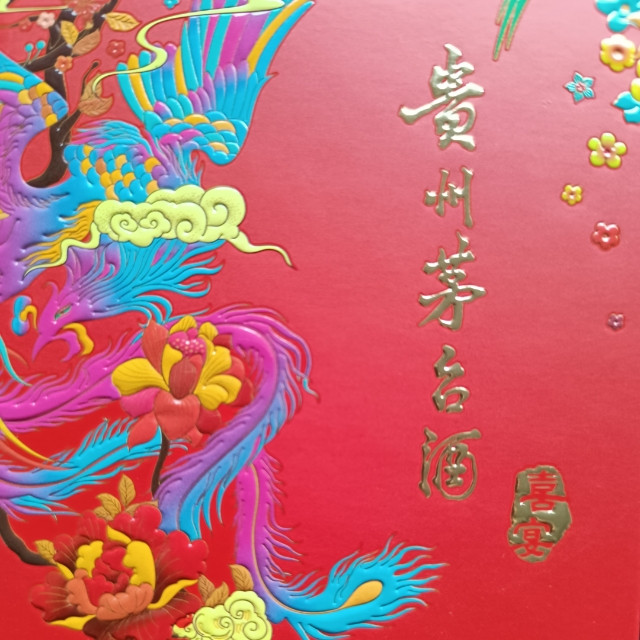 貴州茅台酒
喜宴